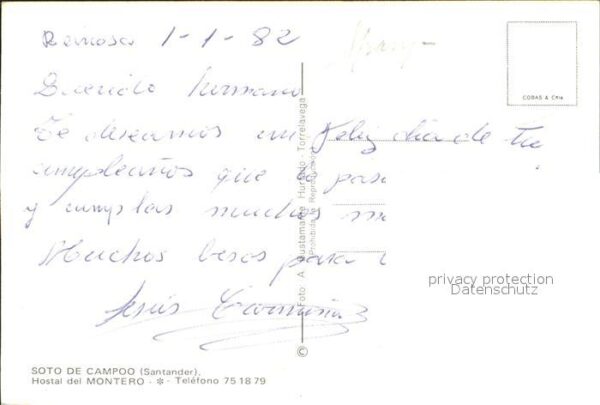 Reinosa 1-1-82
Querido hermano
Te deseamos un Feliz dia de tu
cumpleaños que lo pas
y cumplas muchos m
Muchos besos para
Jesús Carmina
COBAS & Cía
Foto: A. Bustamante Hurtado - Torrelavega
Prohibida la Reproducción
©
privacy protection
Datenschutz
SOTO DE CAMPOO (Santander).
Hostal del MONTERO - ✲ - Teléfono 75 18 79